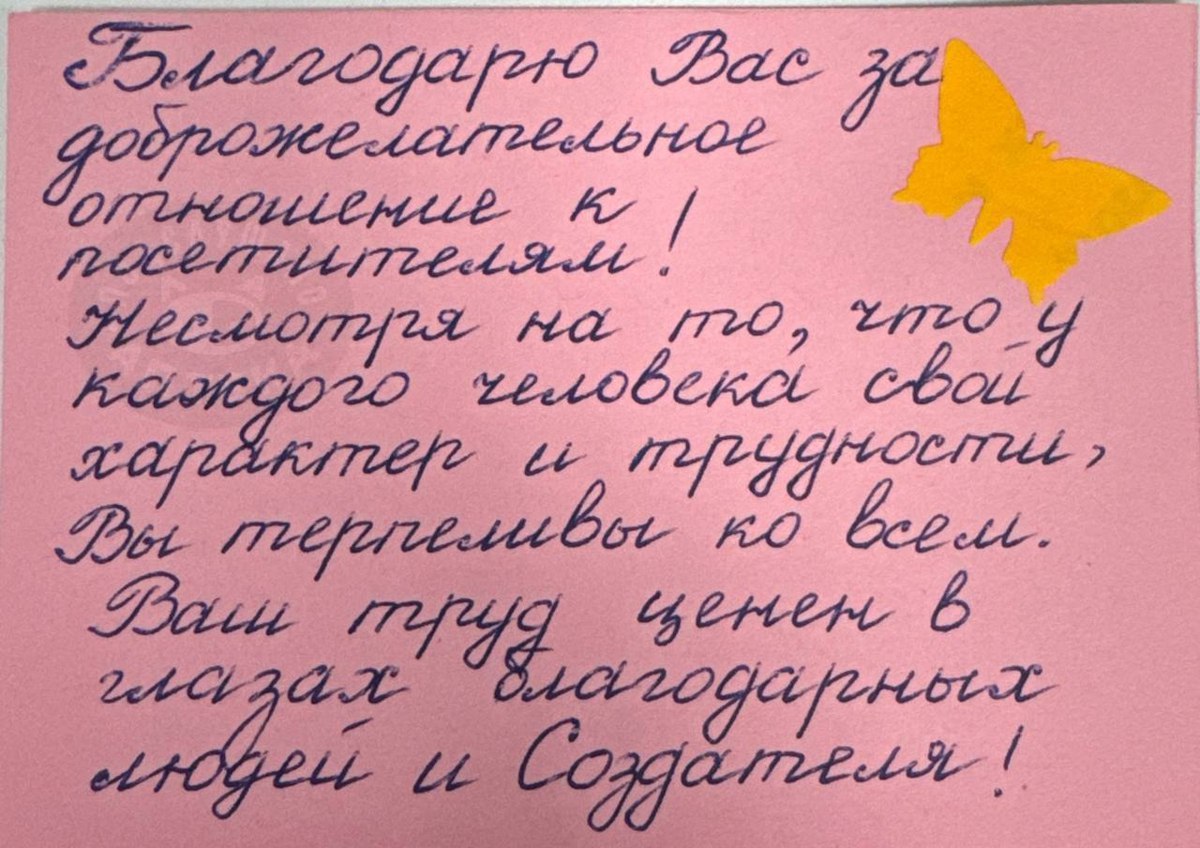 Благодарю Вас за
доброжелательное
отношение к
посетителям!
Несмотря на то, что у
каждого человека свой
характер и трудности,
Вы терпеливы ко всем.
Ваш труд ценен в
глазах благодарных
людей и Создателя!